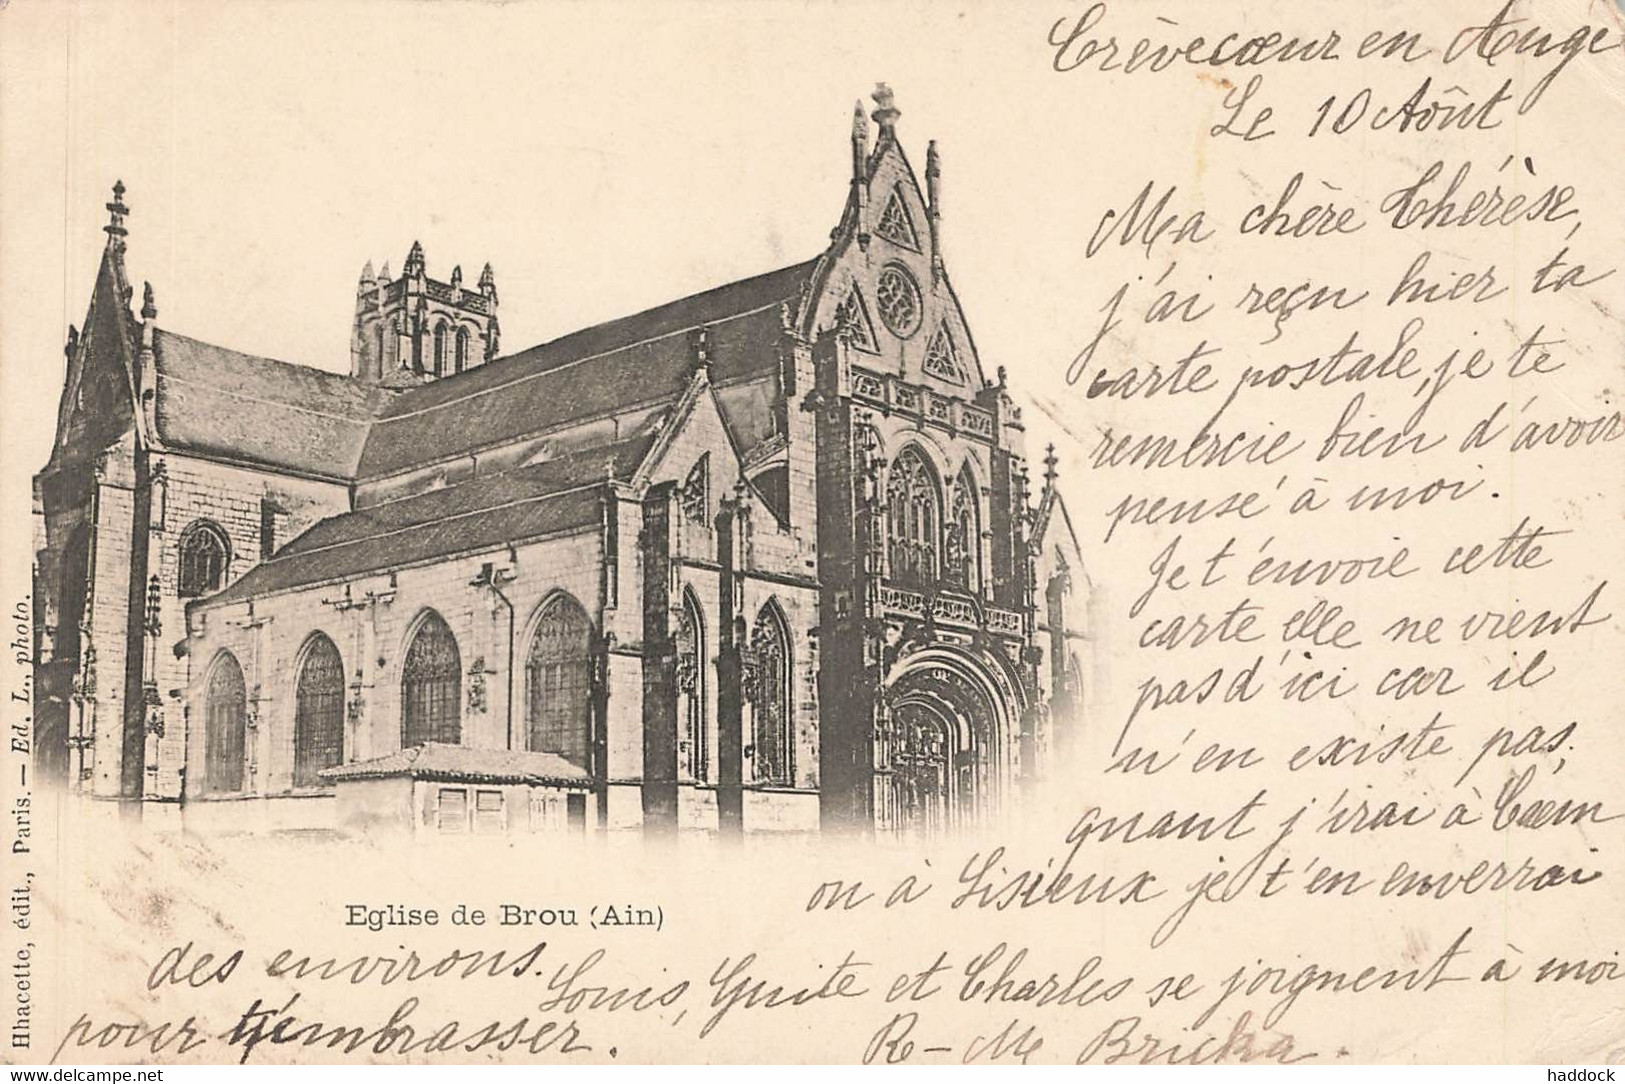 Crèvecœur en Auge
Le 10 Aôut
Ma chère Thérèse,
j'ai reçu hier ta
carte postale, je te
remercie bien d'avoir
pensé à moi.
Je t'envoie cette
carte elle ne vient
pas d'ici car il
n'en existe pas,
quant j'irai à Caen
ou à Lisieux je t'en enverrai
des environs.
Louis, Guite et Charles se joignent à moi
pour t'embrasser.
R-M Bricka.
Eglise de Brou (Ain)
Hhacette, édit., Paris. — Ed. L., photo.
www.delcampe.net
haddock